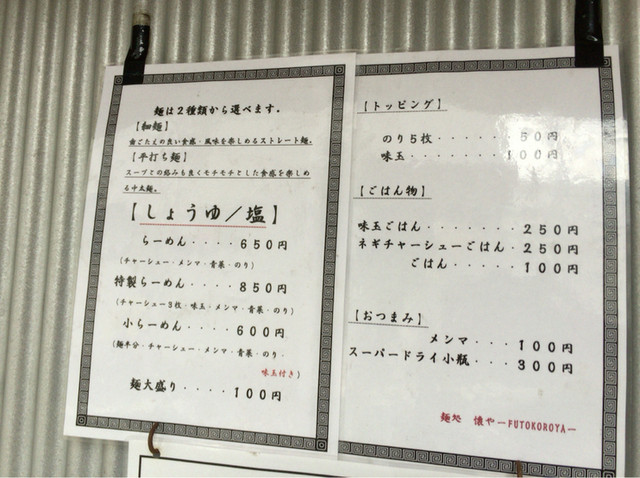 麺は２種類から選べます．
【細麺】
歯ごたえの良い食感・風味を楽しめるストレート麺．
【平打ち麺】
スープとの絡みも良くモチモチとした食感を楽しめ
る中太麺．
【しょうゆ／塩】
らーめん・・・・６５０円
（チャーシュー・メンマ・青菜・のり）
特製らーめん・・・・８５０円
（チャーシュー３枚・味玉・メンマ・青菜・のり）
小らーめん・・・・６００円
（麺半分・チャーシュー・メンマ・青菜・のり・
味玉付き）
麺大盛り・・・・１００円
【トッピング】
のり５枚・・・・・・・５０円
味玉・・・・・・・１００円
【ごはん物】
味玉ごはん・・・・・・・２５０円
ネギチャーシューごはん・２５０円
ごはん・・・・・・・１００円
【おつまみ】
メンマ・・・１００円
スーパードライ小瓶・・・３００円
麺処 懐や－FUTOKOROYA－